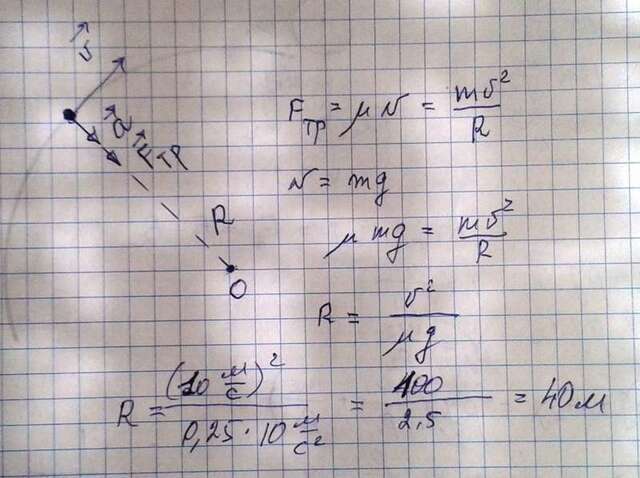 v⃗
a⃗
F⃗тр
R
O
Fтр = μN = mv²/R
N = mg
μmg = mv²/R
R = v²/μg
R = (10 м/с)² / 0,25·10 м/с² = 100/2,5 = 40м